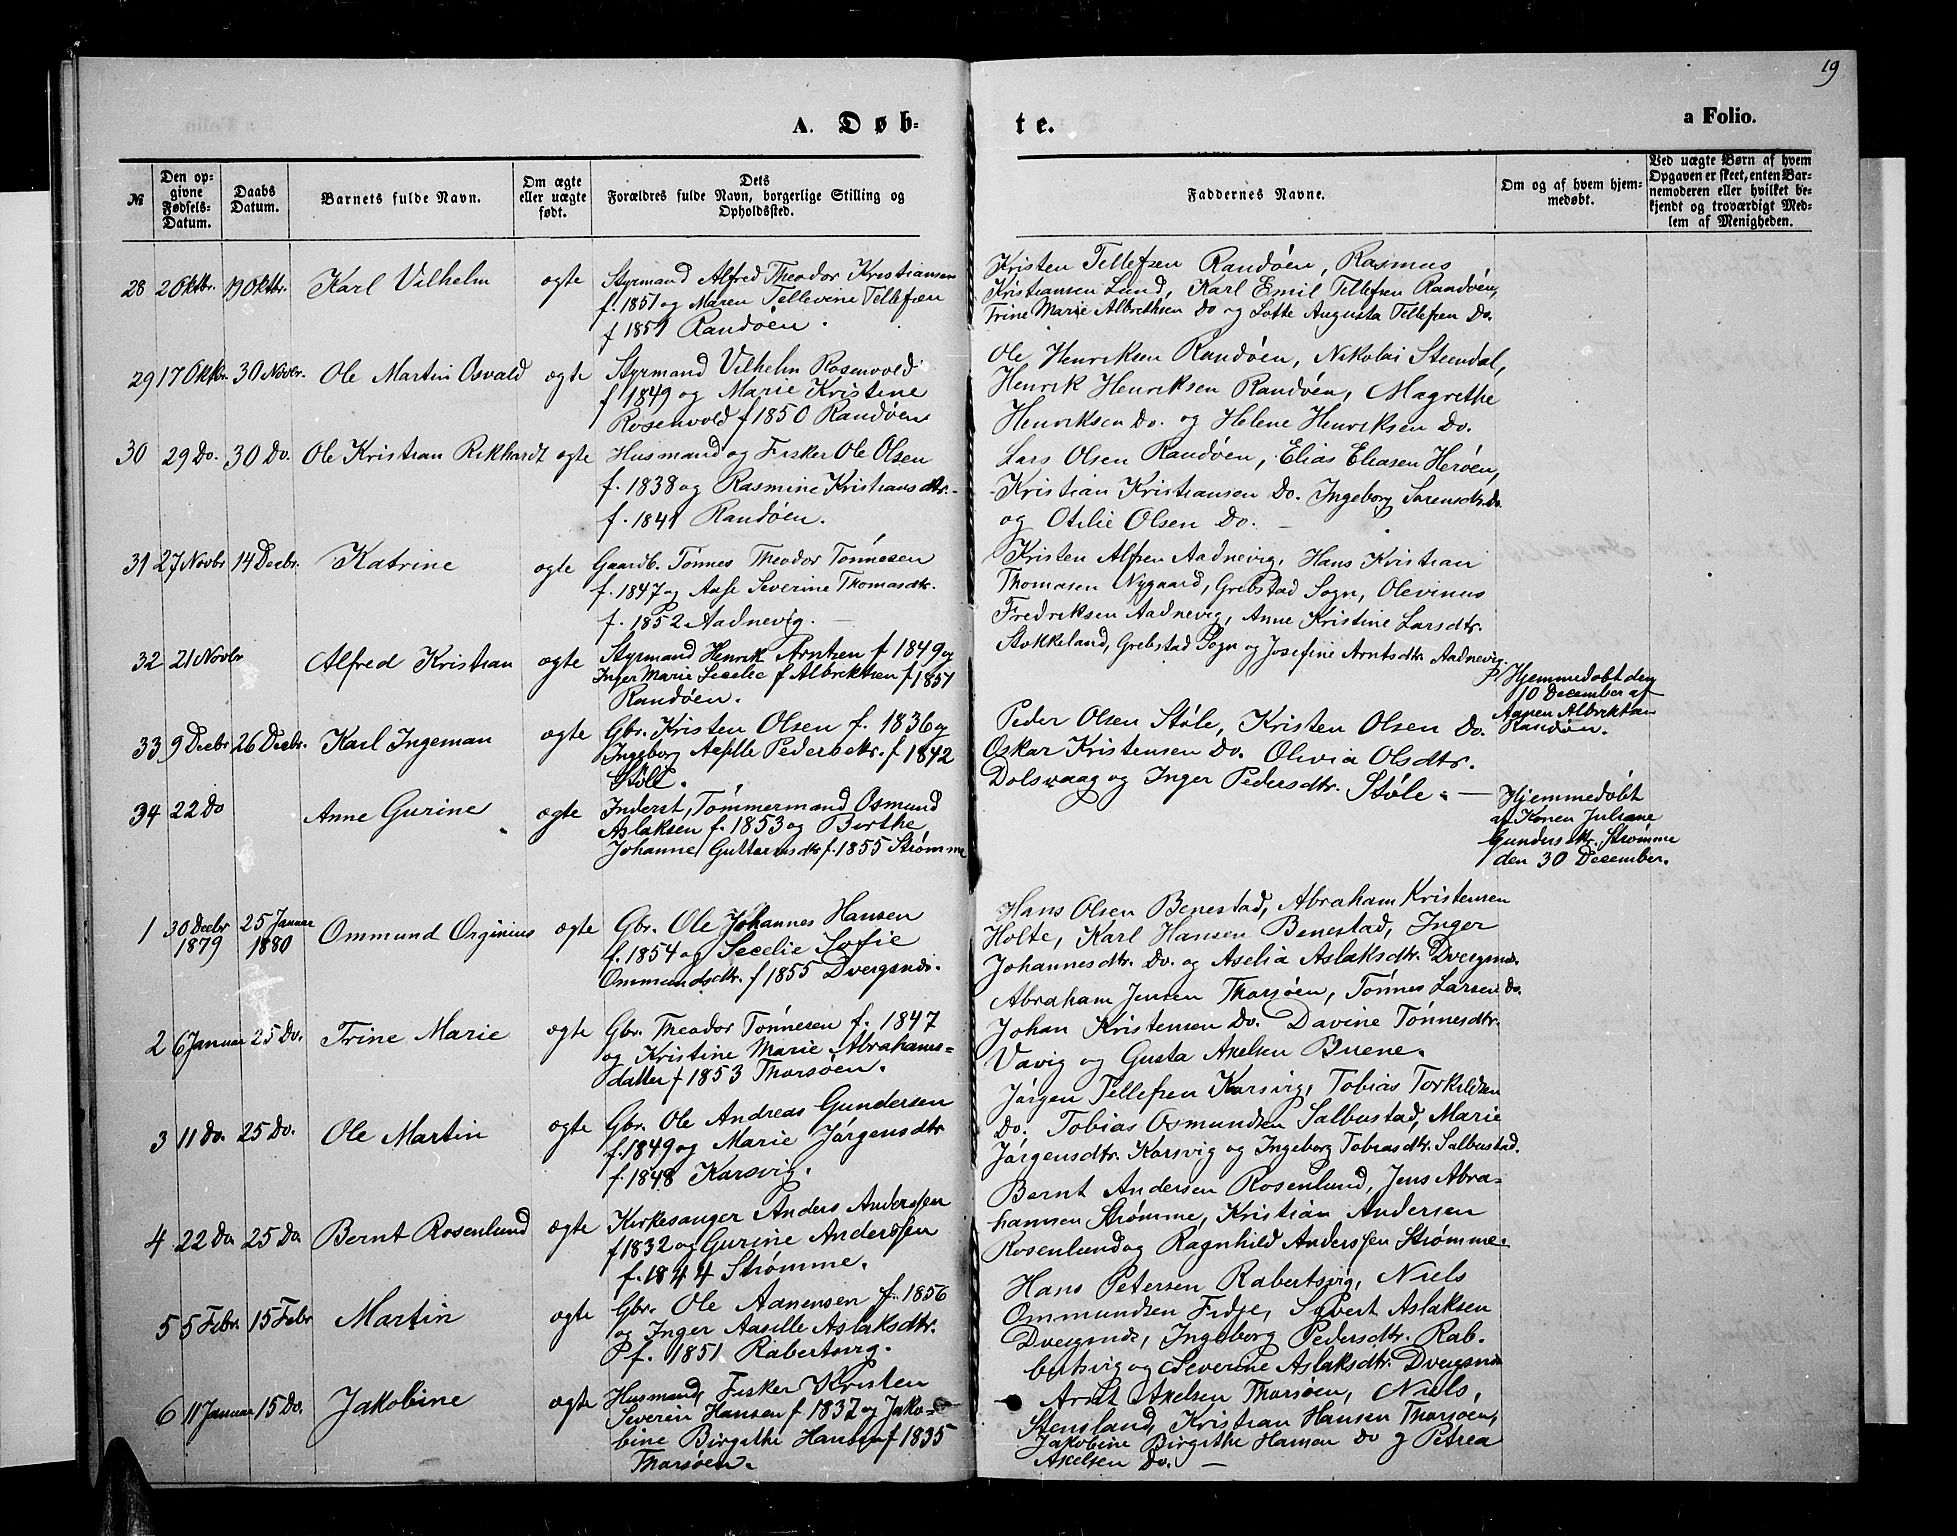 19
A. Døb-
te.
a Folio.
№
Den op-
givne
Fødsels-
Datum.
Daabs
Datum.
Barnets fulde Navn.
Om ægte
eller uægte
født.
Dets
Forældres fulde Navn, borgerlige Stilling og
Opholdssted.
Faddernes Navne.
Om og af hvem hjem-
medøbt.
Ved uægte Børn af hvem
Opgaven er skeet, enten Bar-
nemoderen eller hvilket be-
kjendt og troværdigt Med-
lem af Menigheden.
28 2 Oktbr. 19 Oktbr. Karl Vilhelm ægte
Styrmand Alfred Theodor Kristiansen
f. 1851 og Maren Tellevine Tellefsen
f 1851 Randøen.
Kristen Tellefsen Randøen, Rasmus
Kristiansen Lund, Karl Emil Tellefsen Randøen,
Trine Marie Albrektsen Do og Lotte Augusta Tellefsen Do.
29 17 Oktbr. 30 Novbr. Ole Martin Osvald ægte
Styrmand Vilhelm Rosenvold
f 1849 og Marie Kristine
Rosenvold f 1850 Randøen
Ole Henriksen Randøen, Nikolai Steendal,
Henrik Henriksen Randøen, Magrethe
Henriksen Do. og Helene Henriksen Do.
30 29 Do. 30 Do. Ole Kristian Rikhardt ægte
Husmand og Fisker Ole Olsen
f. 1838 og Rasmine Kristiansdtr.
f. 1841 Randøen.
Lars Olsen Randøen, Elias Eliasen Herøen,
Kristian Kristiansen Do. Ingeborg Sørensdtr. Do
og Otilie Olsen Do. —
31 27 Novbr 14 Decbr. Katrine ægte
Gaardb. Tønnes Theodor Tønnesen
f. 1847 og Aase Severine Thomasdtr.
f. 1852 Aadnevig. —
Kristen Alfsen Aadnevig, Hans Kristian
Thomasen Nygaard, Grebstad Sogn, Olevinus
Fredriksen Aadnevig, Anne Kristine Larsdtr.
Stokkeland, Grebstad Sogn og Josefine Arntsdtr. Aadnevig.
32 21 Novbr Alfred Kristian ægte
Styrmand Henrik Arntzen f 1849 og
Inger Marie Secelie f Albrektsen f 1851
Randøen.
Hjemmedøbt den
10 December af
Aanen Albriktsen
Randøen.
33 9 Decbr 26 Decbr. Karl Ingeman ægte
Gbr. Kristen Olsen f. 1836 og
Ingeborg Aasille Pedersdtr. f 1842
Støle.
Peder Olsen Støle, Kristen Olsen Do.
Oskar Kristensen Do. Olivia Olsdtr.
Dolsvaag og Inger Pedersdtr. Støle. —
34 22 Do Anne Gurine ægte
Inderst, Tømmermand Osmund
Aslaksen f. 1853 og Berthe
Johanne Guttormsdtr f. 1855 Strømme
Hjemmedøbt
af Konen Juliane
Gundersdtr. Strømme
den 30 Desember.
1 30 Decbr 1879 25 Januar 1880 Ommund Orginius ægte
Gbr. Ole Johannes Hansen
f. 1854 og Secelie Sofie
Ommundsdtr. f 1855 Dvergsnæs.
Hans Olsen Benestad, Abraham Kristensen
Holte, Karl Hansen Benestad, Inger
Johannesdtr. Do. og Aselia Aslaksdtr. Dvergsnæs.
2 6 Januar 25 Do. Trine Marie ægte
Gbr. Theodor Tønnesen f. 1847
og Kristine Marie Abrahams=
datter f 1853 Tharsøen.
Abraham Jensen Tharsøen, Tønnes Larsen Do.
Johan Kristensen Do. Davine Tønnesdtr.
Vavig og Gusta Axelsen Buene.
3 11 Do. 25 Do. Ole Martin ægte
Gbr. Ole Andreas Gundersen
f. 1849 og Marie Jørgensdtr
f. 1848 Korsvig.
Jørgen Tellefsen Korsvig, Tobias Torkildsen
Do. Tobias Osmundsen Salbustad, Marie
Jørgensdtr. Korsvig og Ingeborg Tobiasdtr. Salbustad.
4 22 Do 25 Do Bernt Rosenlund ægte
Kirkesanger Anders Anderssen
f 1832 og Gurine Anderssen
f. 1844 Strømme.
Bernt Andersen Rosenlund, Jens Abra-
hamsen Strømme, Kristian Andersen
Rosenlund og Ragnhild Anderssen Strømme.
5 5 Febr. 15 Febr Martin ægte
Gbr. Ole Aanensen f. 1856
og Inger Aasille Aslaksdtr.
f. 1851 Rabertsvig.
Hans Petersen Rabertsvig, Niels
Ommundsen Fidje, Sivert Aslaksen
Dvergsnæs, Ingeborg Pedersdtr. Rab-
bertsvig og Severine Aslaksdtr. Dvergsnæs
6 11 Januar 15 Do. Jakobine ægte
Husmand, Fisker Kristen
Severin Hansen f 1832 og Jako-
bine Birgithe Hansen f 1835
Tharsøen.
Arnt Axelsen Tharsøen, Niels
Stensland, Kristian Hansen Tharsøen,
Jakobine Birgithe Hansen Do og Petrea
Axelsen Do. —